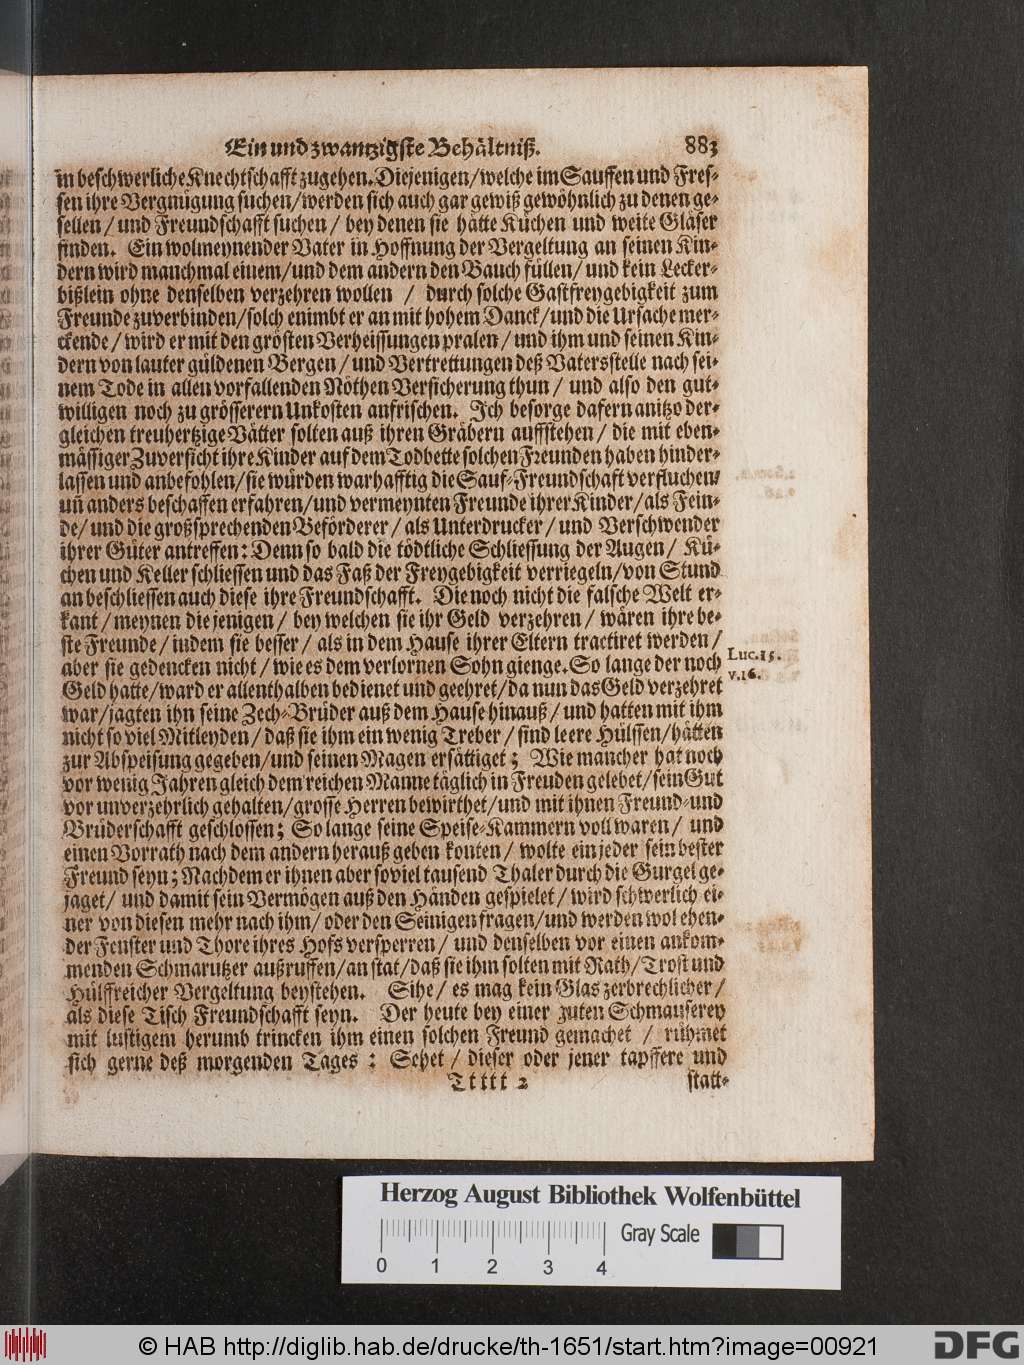 Ein und zwantzigste Behältniß. 883
in beschwerliche Knechtschafft zugehen. Diejenigen/welche im Sauffen und Fres-
sen ihre Vergnügung suchen/werden sich auch gar gewiß gewöhnlich zu denen ge-
sellen/ und Freundschafft suchen/ bey denen sie hätte Küchen und weite Gläser
finden. Ein wolmeynender Vater in Hoffnung der Vergeltung an seinen Kin-
dern wird manchmal einem/und dem andern den Bauch füllen/ und kein Lecker-
bißlein ohne denselben verzehren wollen / durch solche Gastfreygebigkeit zum
Freunde zuverbinden/solch enimbt er an mit hohem Danck/und die Ursache mer-
ckende/ wird er mit den grösten Verheissungen pralen/ und ihm und seinen Kin-
dern von lauter güldenen Bergen/ und Vertrettungen deß Vatersstelle nach sei-
nem Tode in allen vorfallenden Nöthen Versicherung thun/ und also den gut-
willigen noch zu grösserern Unkosten anfrischen. Ich besorge dafern anitzo der-
gleichen treuhertzige Vätter solten auß ihren Gräbern auffstehen/ die mit eben-
mässiger Zuversicht ihre Kinder auf dem Todbette solchen Freunden haben hinder-
lassen und anbefohlen/sie würden warhafftig die Sauf-Freundschaft verfluchen/
uñ anders beschaffen erfahren/und vermeynten Freunde ihrer Kinder/als Fein-
de/ und die großsprechenden Beförderer/ als Unterdrucker/ und Verschwender
ihrer Güter antreffen: Denn so bald die tödtliche Schliessung der Augen/ Kü-
chen und Keller schliessen und das Faß der Freygebigkeit verriegeln/von Stund
an beschliessen auch diese ihre Freundschafft. Die noch nicht die falsche Welt er-
kant/ meynen die jenigen/ bey welchen sie ihr Geld verzehren/ wären ihre be-
ste Freunde/ indem sie besser/ als in dem Hause ihrer Eltern tractiret werden/
aber sie gedencken nicht/ wie es dem verlornen Sohn gienge. So lange der noch
Luc. 15.
Geld hatte/ward er allenthalben bedienet und geehret/da nun das Geld verzehret
v. 16.
war/jagten ihn seine Zech-Brüder auß dem Hause hinauß/ und hatten mit ihm
nicht so viel Mitleyden/ daß sie ihm ein wenig Treber/ sind leere Hülssen/hätten
zur Abspeisung gegeben/und seinen Magen ersättiget; Wie mancher hat noch
vor wenig Jahren gleich dem reichen Manne täglich in Freuden gelebet/sein Gut
vor unverzehrlich gehalten/grosse Herren bewirthet/und mit ihnen Freund-und
Brüderschafft geschlossen; So lange seine Speise-Kammern voll waren/ und
einen Vorrath nach dem andern herauß geben konten/ wolte ein jeder sein bester
Freund seyn; Nachdem er ihnen aber soviel tausend Thaler durch die Gurgel ge-
jaget/ und damit sein Vermögen auß den Händen gespielet/ wird schwerlich ei-
ner von diesen mehr nach ihm/ oder den Seinigen fragen/und werden wol eben-
der Fenster und Thore ihres Hofs versperren/ und denselben vor einen ankom-
menden Schmarutzer außruffen/an stat/daß sie ihm solten mit Rath/Trost und
Hülffreicher Vergeltung beystehen. Sihe/ es mag kein Glas zerbrechlicher/
als diese Tisch Freundschafft seyn. Der heute bey einer guten Schmauserey
mit lustigem herumb trincken ihm einen solchen Freund gemachet / rühmet
sich gerne deß morgenden Tages: Sehet/ dieser oder jener tapffere und
Ttttt 2 statt-
Herzog August Bibliothek Wolfenbüttel
Gray Scale
0 1 2 3 4
© HAB http://diglib.hab.de/drucke/th-1651/start.htm?image=00921
DFG